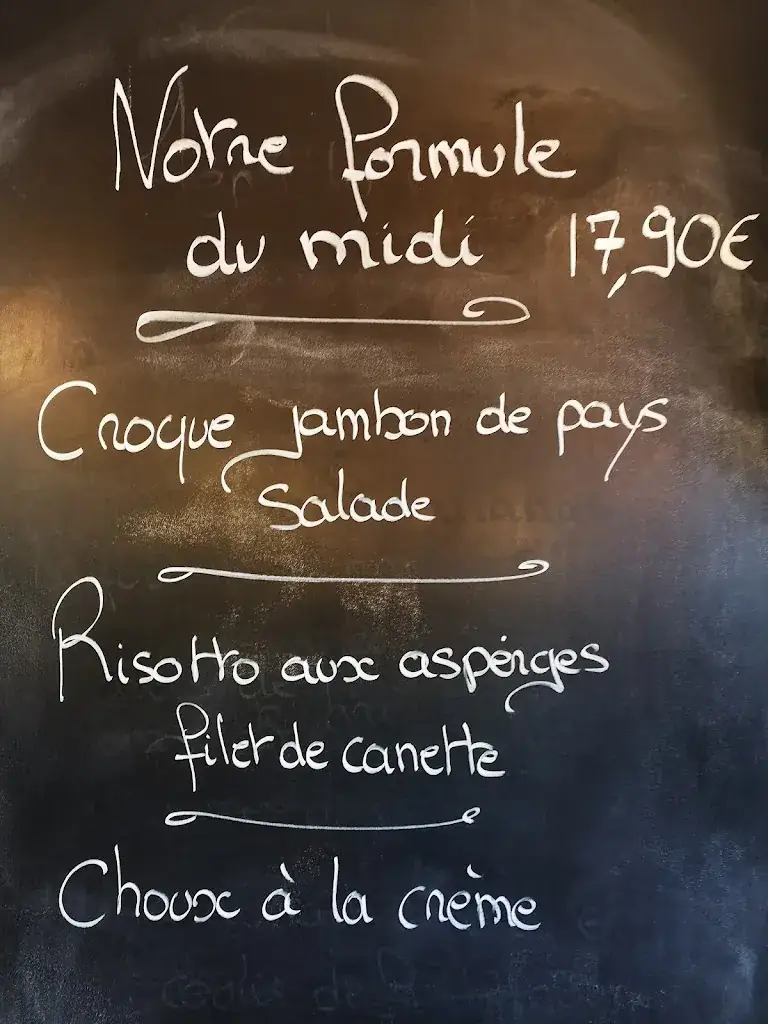 Notre formule
du midi 17,90€
Croque jambon de pays
Salade
Risotto aux aspérges
filet de canette
Choux à la crème